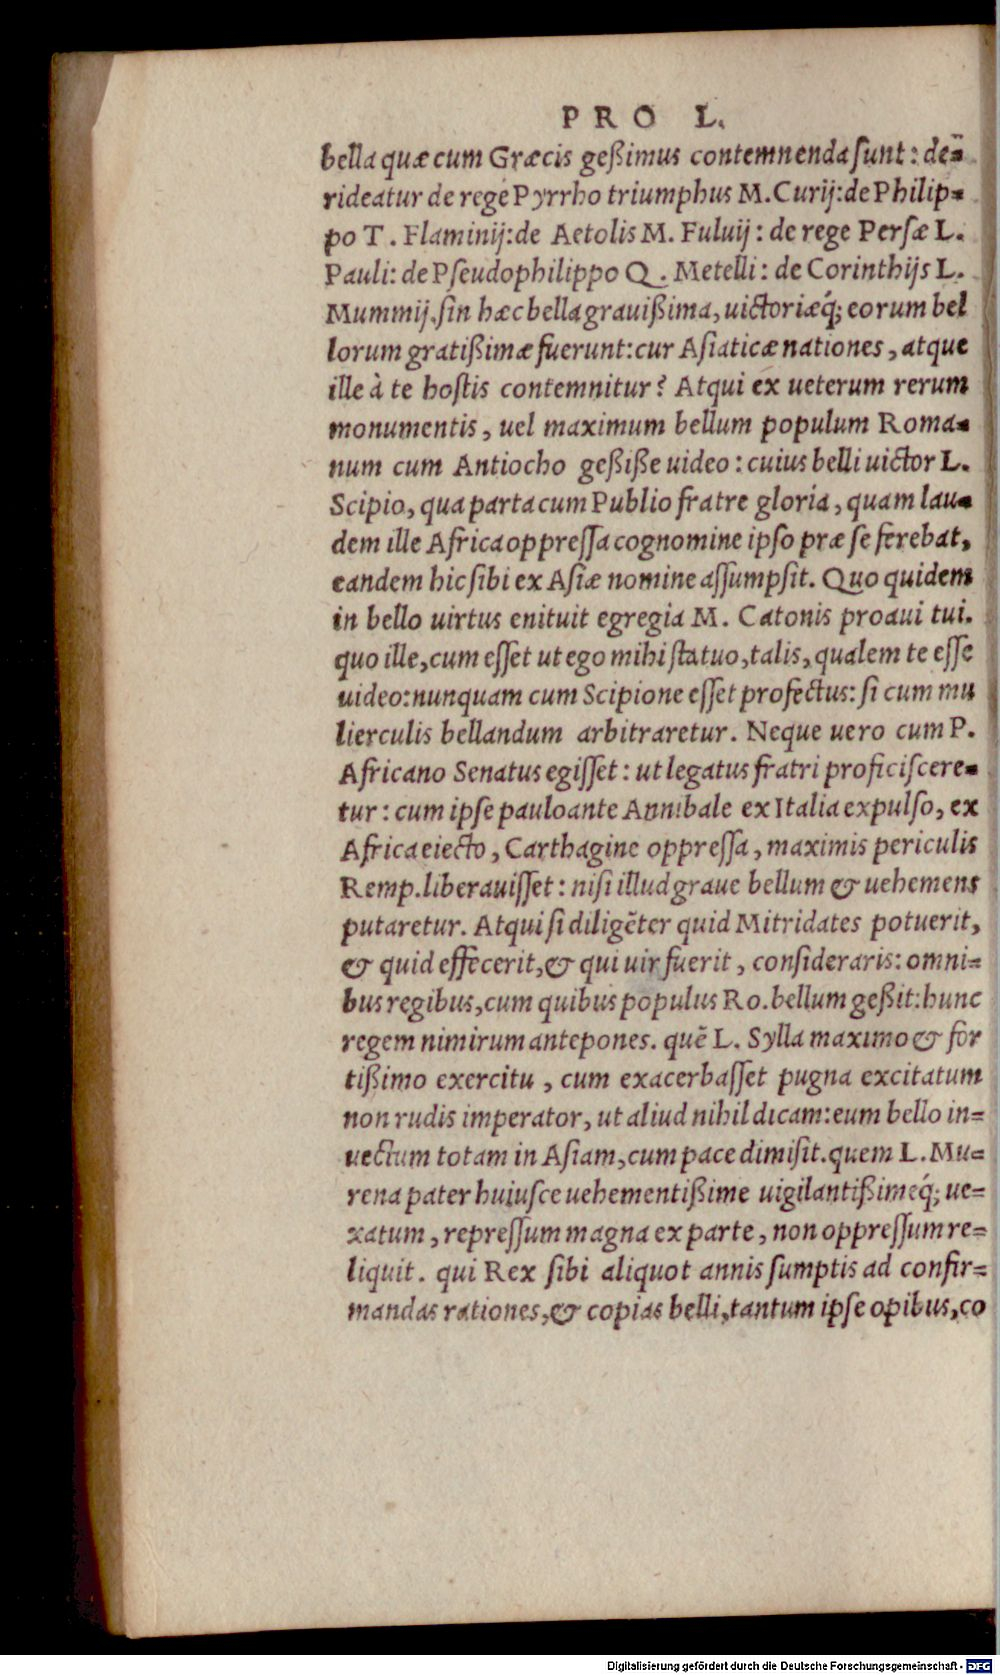 PRO L.
bella quæ cum Græcis geßimus contemnenda sunt: de=
rideatur de rege Pyrrho triumphus M. Curij: de Philip=
po T. Flaminij: de Aetolis M. Fuluij: de rege Persæ L.
Pauli: de Pseudophilippo Q. Metelli: de Corinthijs L.
Mummij. sin hæc bella grauißima, uictoriæq́; eorum bel
lorum gratißimæ fuerunt: cur Asiaticæ nationes, atque
ille à te hostis contemnitur? Atqui ex ueterum rerum
monumentis, uel maximum bellum populum Roma=
num cum Antiocho geßiße uideo: cuius belli uictor L.
Scipio, qua parta cum Publio fratre gloria, quam lau=
dem ille Africa oppressa cognomine ipso præ se ferebat,
eandem hic sibi ex Asiæ nomine assumpsit. Quo quidem
in bello uirtus enituit egregia M. Catonis proaui tui.
quo ille, cum esset ut ego mihi statuo, talis, qualem te esse
uideo: nunquam cum Scipione esset profectus: si cum mu
lierculis bellandum arbitraretur. Neque uero cum P.
Africano Senatus egisset: ut legatus fratri proficiscere=
tur: cum ipse pauloante Annibale ex Italia expulso, ex
Africa eiecto, Carthagine oppressa, maximis periculis
Remp. liberauisset: nisi illud graue bellum & uehemens
putaretur. Atqui si diligẽter quid Mitridates potuerit,
& quid effecerit, & qui uir fuerit, consideraris: omni=
bus regibus, cum quibus populus Ro. bellum geßit: hunc
regem nimirum antepones. quẽ L. Sylla maximo & for
tißimo exercitu, cum exacerbasset pugna excitatum
non rudis imperator, ut aliud nihil dicam: eum bello in=
uectum totam in Asiam, cum pace dimisit. quem L. Mu=
rena pater huiusce uehementißime uigilantißimeq́; ue=
xatum, repressum magna ex parte, non oppressum re=
liquit. qui Rex sibi aliquot annis sumptis ad confir=
mandas rationes, & copias belli, tantum ipse opibus, co
Digitalisierung gefördert durch die Deutsche Forschungsgemeinschaft - DFG